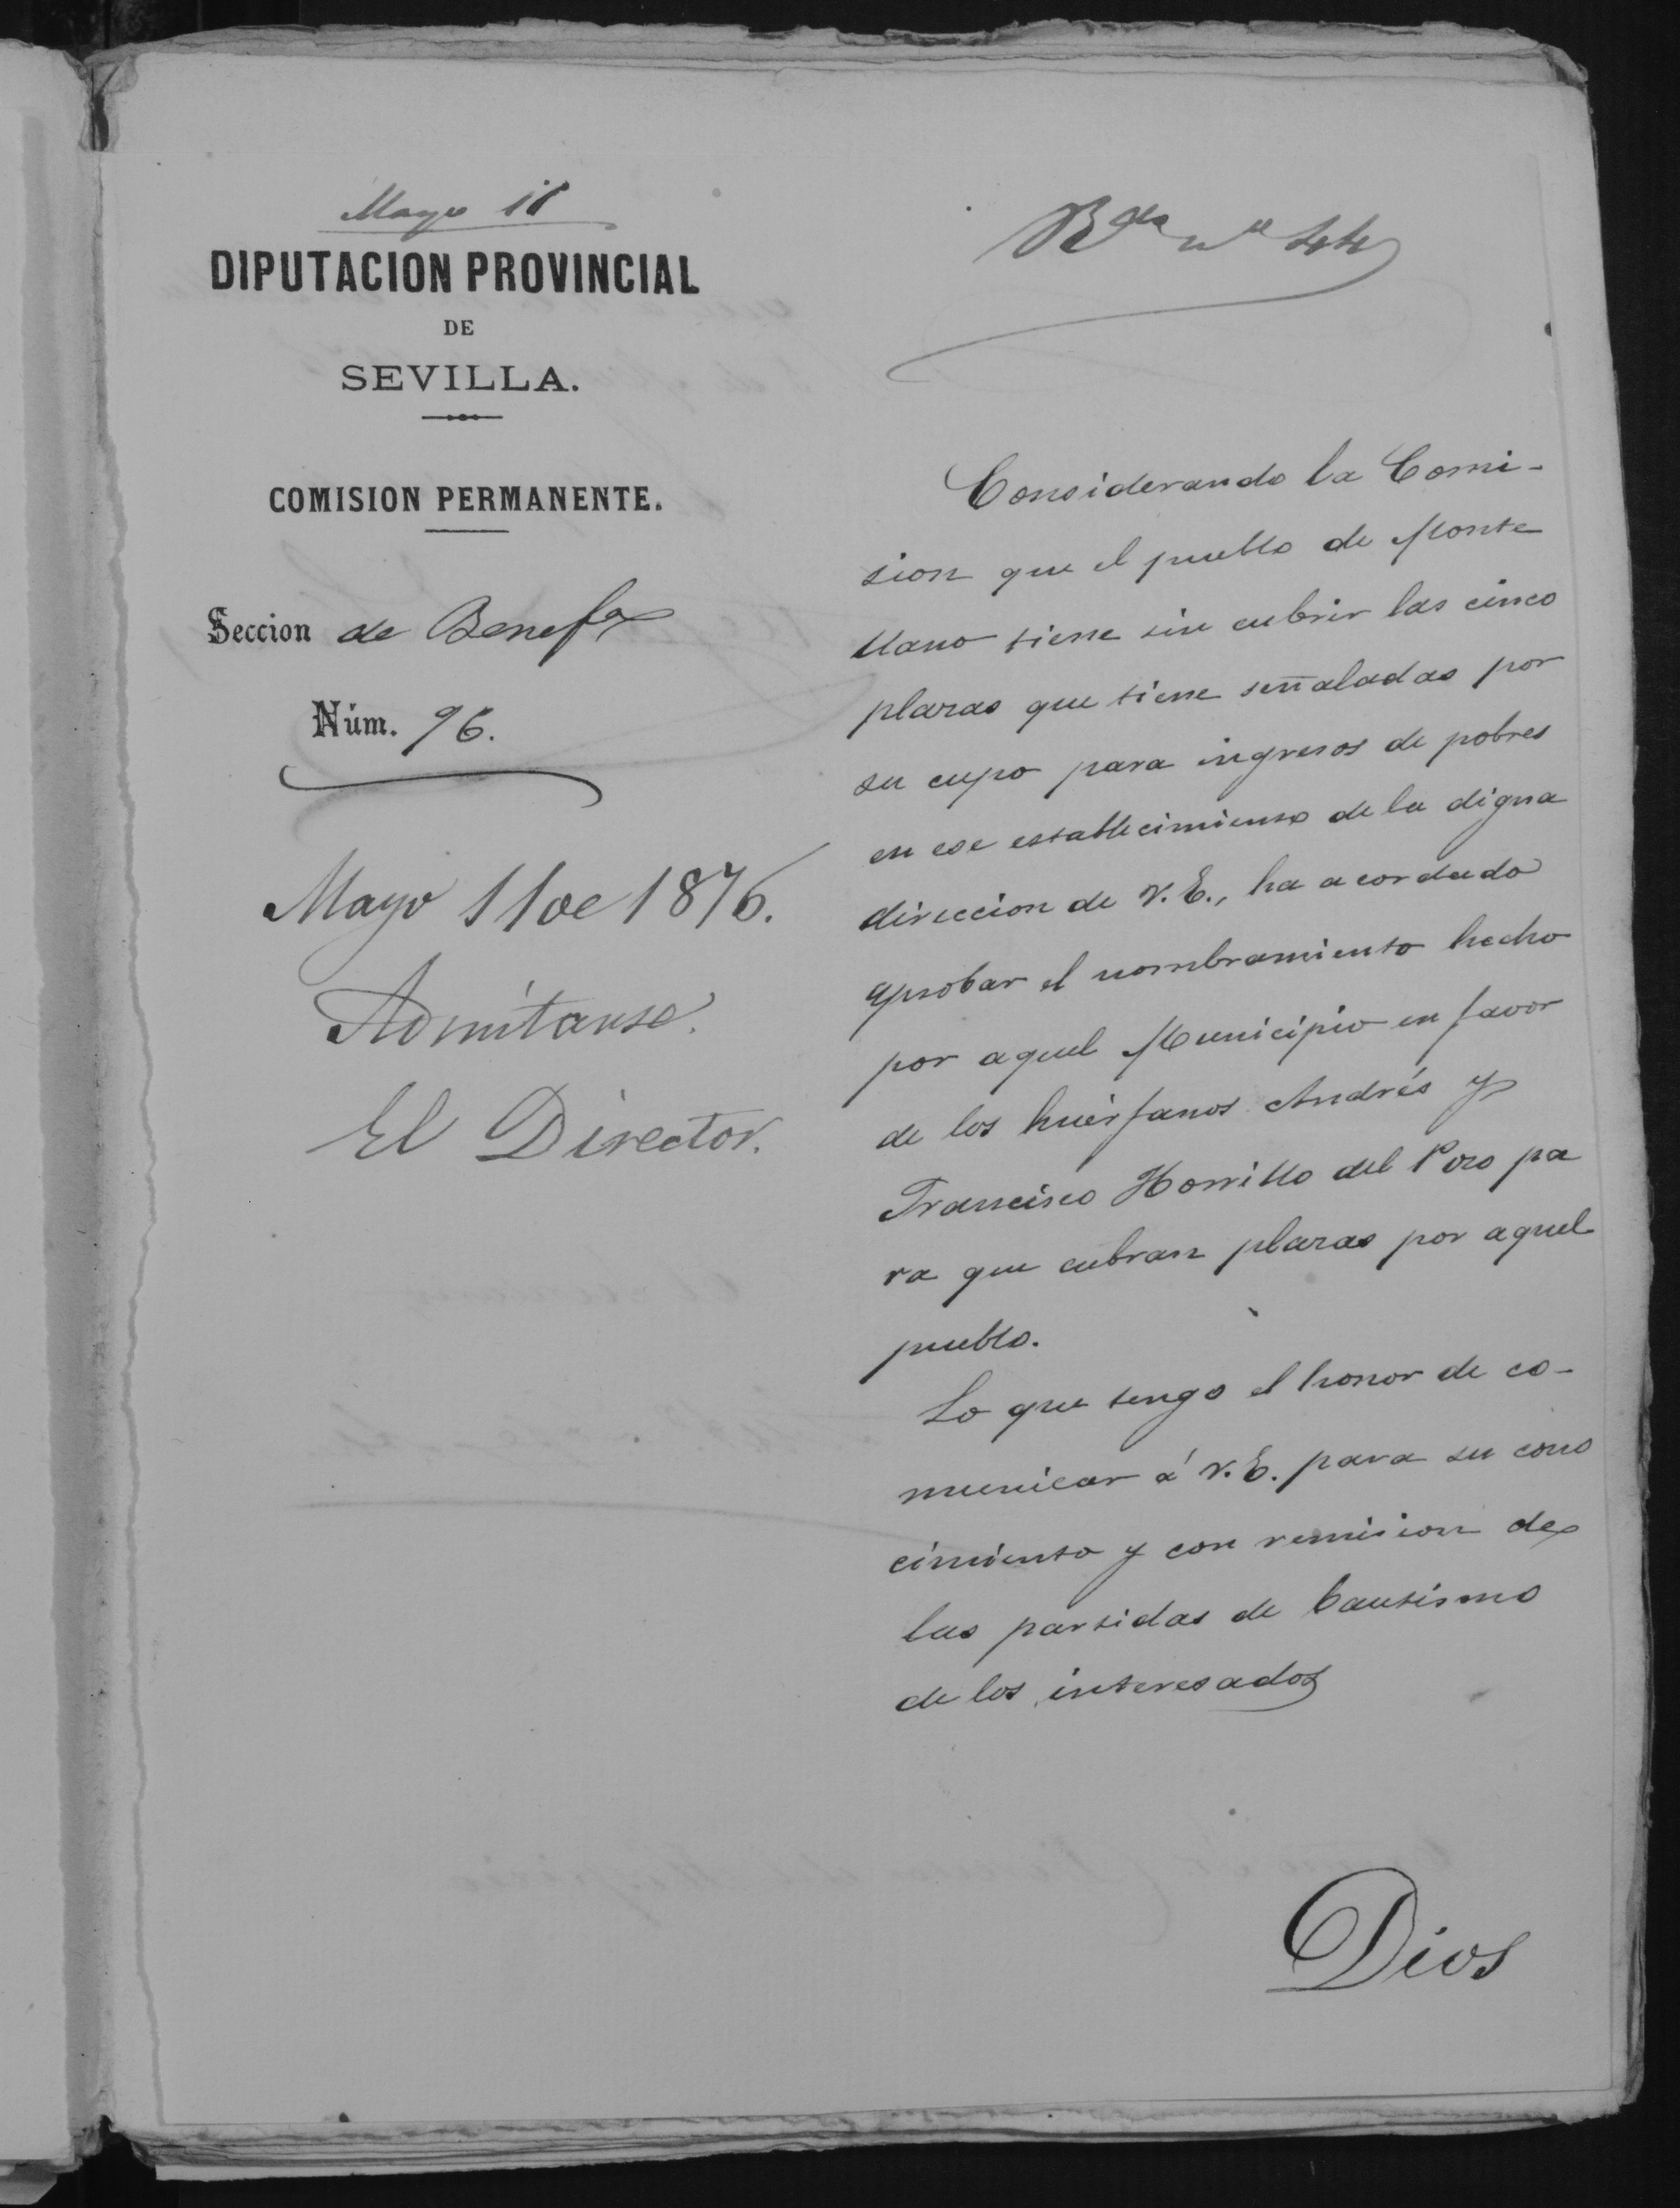 Mayo 11
DIPUTACION PROVINCIAL
DE
SEVILLA.
COMISION PERMANENTE.
Seccion de Benefa
Núm. 96.
Mayo 11 de 1876.
Admítanse.
El Director.
Rda nº 44
Considerando la Comi-
sion que el pueblo de Monte
llano tiene sin cubrir las cinco
plazas que tiene señaladas por
su cupo para ingresos de pobres
en ese establecimiento de la digna
direccion de V.E., ha acordado
aprobar el nombramiento hecho
por aquel Municipio en favor
de los huérfanos Andrés y
Francisco Horrillo del Pozo pa
ra que cubran plazas por aquel
pueblo.
Lo que tengo el honor de co-
municar á V.E. para su cono
cimiento y con remision de
las partidas de bautismo
de los interesados
Dios